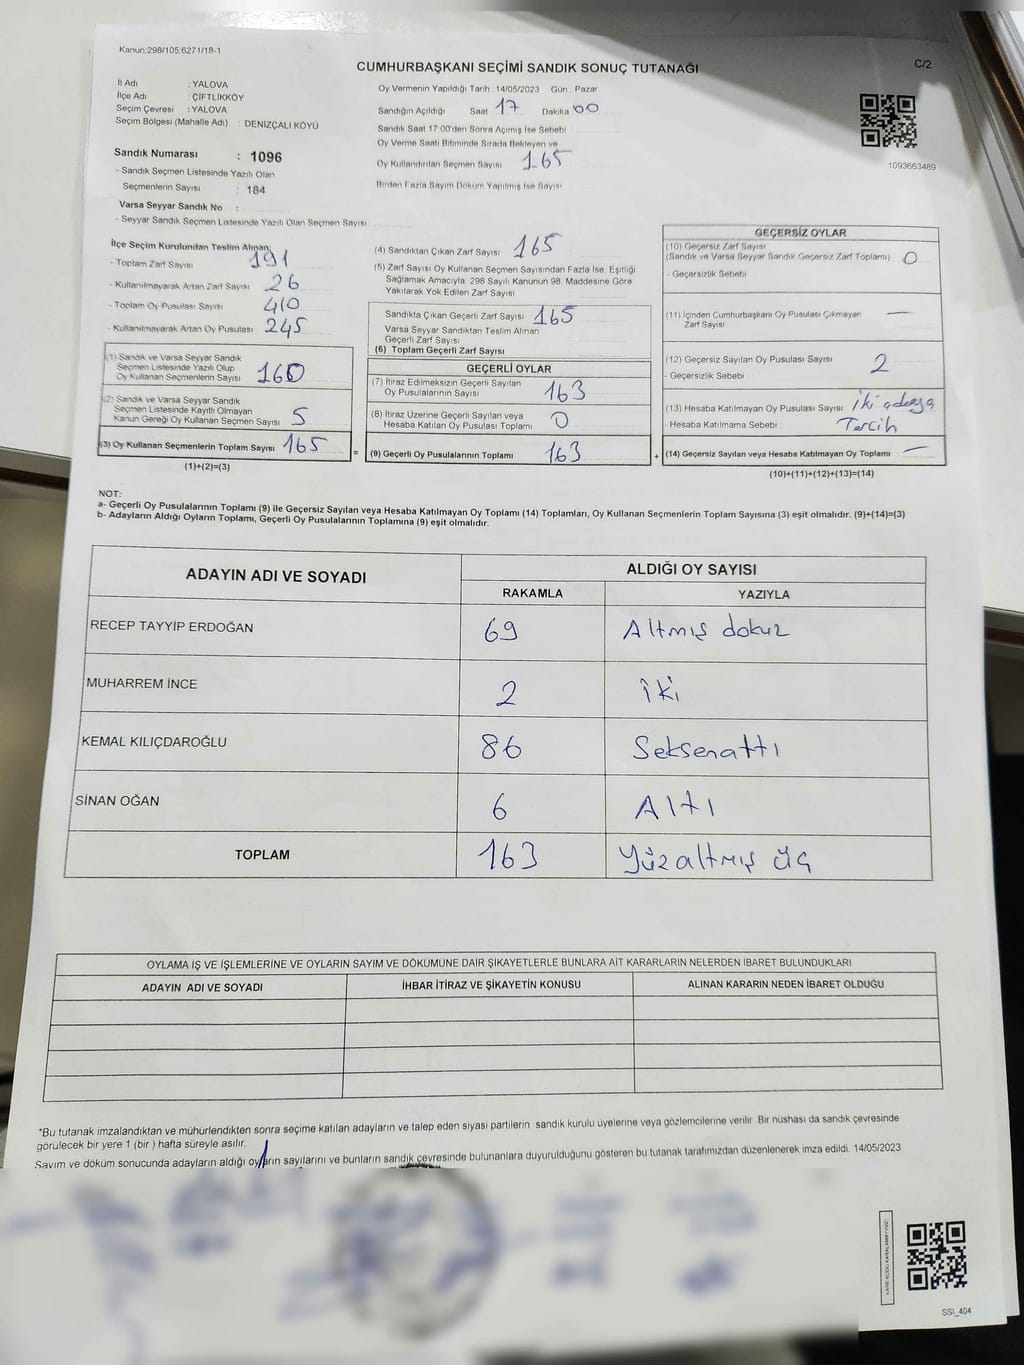 Kanun:298/105,6271/18-1
CUMHURBAŞKANI SEÇİMİ SANDIK SONUÇ TUTANAĞI
C/2
İl Adı : YALOVA
İlçe Adı : ÇİFTLİKKÖY
Seçim Çevresi : YALOVA
Seçim Bölgesi (Mahalle Adı) : DENİZÇALI KÖYÜ
Sandık Numarası : 1096
- Sandık Seçmen Listesinde Yazılı Olan
Seçmenlerin Sayısı : 184
Varsa Seyyar Sandık No :
- Seyyar Sandık Seçmen Listesinde Yazılı Olan Seçmen Sayısı
Oy Vermenin Yapıldığı Tarih : 14/05/2023 Gün : Pazar
Sandığın Açıldığı Saat 17 Dakika 00
Sandık Saat 17:00'den Sonra Açımış İse Sebebi
Oy Verme Saati Bitiminde Sırada Bekleyen ve
Oy Kullandırılan Seçmen Sayısı 165
Birden Fazla Sayım Döküm Yapılmış İse Sayısı
1093663489
İlçe Seçim Kurulundan Teslim Alınan;
- Toplam Zarf Sayısı 191
- Kullanılmayarak Artan Zarf Sayısı 26
- Toplam Oy Pusulası Sayısı 410
- Kullanılmayarak Artan Oy Pusulası 245
(1) Sandık ve Varsa Seyyar Sandık
Seçmen Listesinde Yazılı Olup
Oy Kullanan Seçmenlerin Sayısı 160
(2) Sandık ve Varsa Seyyar Sandık
Seçmen Listesinde Kayıtlı Olmayan
Kanun Gereği Oy Kullanan Seçmen Sayısı 5
(3) Oy Kullanan Seçmenlerin Toplam Sayısı 165
(1)+(2)=(3)
(4) Sandıktan Çıkan Zarf Sayısı 165
(5) Zarf Sayısı Oy Kullanan Seçmen Sayısından Fazla İse, Eşitliği
Sağlamak Amacıyla; 298 Sayılı Kanunun 98. Maddesine Göre
Yakılarak Yok Edilen Zarf Sayısı
Sandıkta Çıkan Geçerli Zarf Sayısı 165
Varsa Seyyar Sandıktan Teslim Alınan
Geçerli Zarf Sayısı
(6) Toplam Geçerli Zarf Sayısı
GEÇERLİ OYLAR
(7) İtiraz Edilmeksizin Geçerli Sayılan
Oy Pusulalarının Sayısı 163
(8) İtiraz Üzerine Geçerli Sayılan veya
Hesaba Katılan Oy Pusulaları Toplamı 0
= (9) Geçerli Oy Pusulalarının Toplamı 163 +
GEÇERSİZ OYLAR
(10) Geçersiz Zarf Sayısı
(Sandık ve Varsa Seyyar Sandık Geçersiz Zarf Toplamı) 0
- Geçersizlik Sebebi
(11) İçinden Cumhurbaşkanı Oy Pusulası Çıkmayan —
Zarf Sayısı
(12) Geçersiz Sayılan Oy Pusulası Sayısı 2
- Geçersizlik Sebebi
(13) Hesaba Katılmayan Oy Pusulası Sayısı iki adaya
- Hesaba Katılmama Sebebi Tercih
(14) Geçersiz Sayılan veya Hesaba Katılmayan Oy Toplamı —
(10)+(11)+(12)+(13)=(14)
NOT:
a- Geçerli Oy Pusulalarının Toplamı (9) ile Geçersiz Sayılan veya Hesaba Katılmayan Oy Toplamı (14) Toplamları, Oy Kullanan Seçmenlerin Toplam Sayısına (3) eşit olmalıdır. (9)+(14)=(3)
b- Adayların Aldığı Oyların Toplamı, Geçerli Oy Pusulalarının Toplamına (9) eşit olmalıdır.
ADAYIN ADI VE SOYADI
ALDIĞI OY SAYISI
RAKAMLA YAZIYLA
RECEP TAYYİP ERDOĞAN 69 Altmış dokuz
MUHARREM İNCE 2 iki
KEMAL KILIÇDAROĞLU 86 Seksenattı
SİNAN OĞAN 6 Altı
TOPLAM 163 Yüzaltmış üç
OYLAMA İŞ VE İŞLEMLERİNE VE OYLARIN SAYIM VE DÖKÜMÜNE DAİR ŞİKAYETLERLE BUNLARA AİT KARARLARIN NELERDEN İBARET BULUNDUKLARI
ADAYIN ADI VE SOYADI İHBAR İTİRAZ VE ŞİKAYETİN KONUSU ALINAN KARARIN NEDEN İBARET OLDUĞU
*Bu tutanak imzalandıktan ve mühürlendikten sonra seçime katılan adayların ve talep eden siyasi partilerin sandık kurulu üyelerine veya gözlemcilerine verilir. Bir nüshası da sandık çevresinde
görülecek bir yere 1 (bir ) hafta süreyle asılır.
Sayım ve döküm sonucunda adayların aldığı oyların sayılarını ve bunların sandık çevresinde bulunanlara duyurulduğunu gösteren bu tutanak tarafımızdan düzenlenerek imza edildi. 14/05/2023
SSI_404